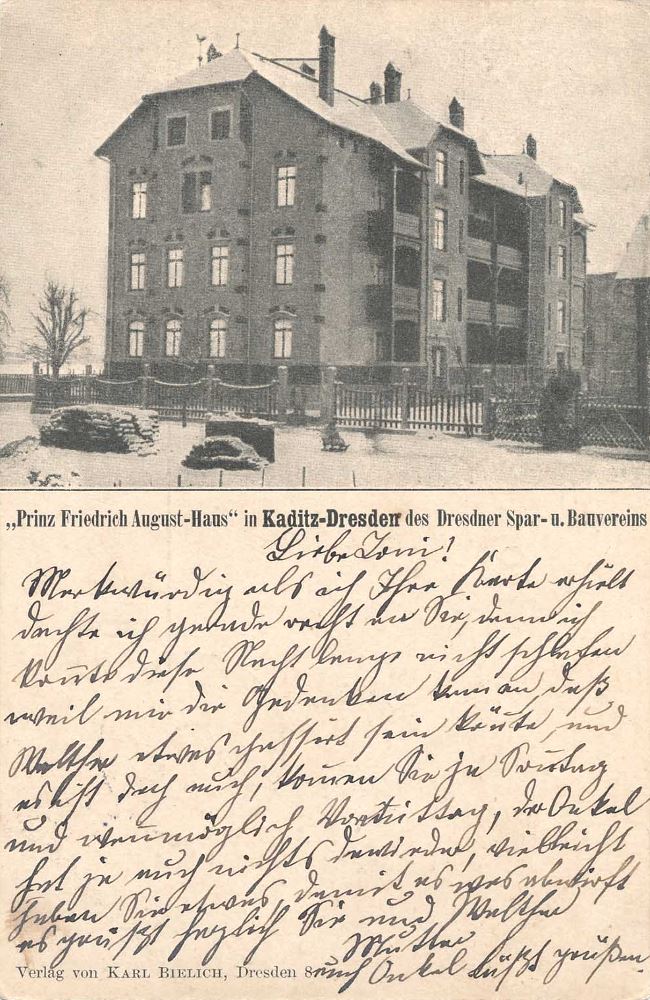 „Prinz Friedrich August-Haus“ in Kaditz-Dresden des Dresdner Spar- u. Bauvereins
Liebe Toni!
Merkwürdig als ich Ihre Karte erhielt
dachte ich gerade recht an Sie, denn ich
konnte diese Nacht lange nicht schlafen
weil mir die Gedanken kamen daß
Walther etwas passiert sein könnte, und
es ist doch auch, kommen Sie ja Sonntag
und wenn möglich Vormittag, der Onkel
hat ja auch nichts dawieder, vielleicht
haben Sie etwas damit es was abwirft
es grüßt herzlich Sie und Walther
Mutter
auch Onkel läßt grüßen.
Verlag von Karl Bielich, Dresden 8